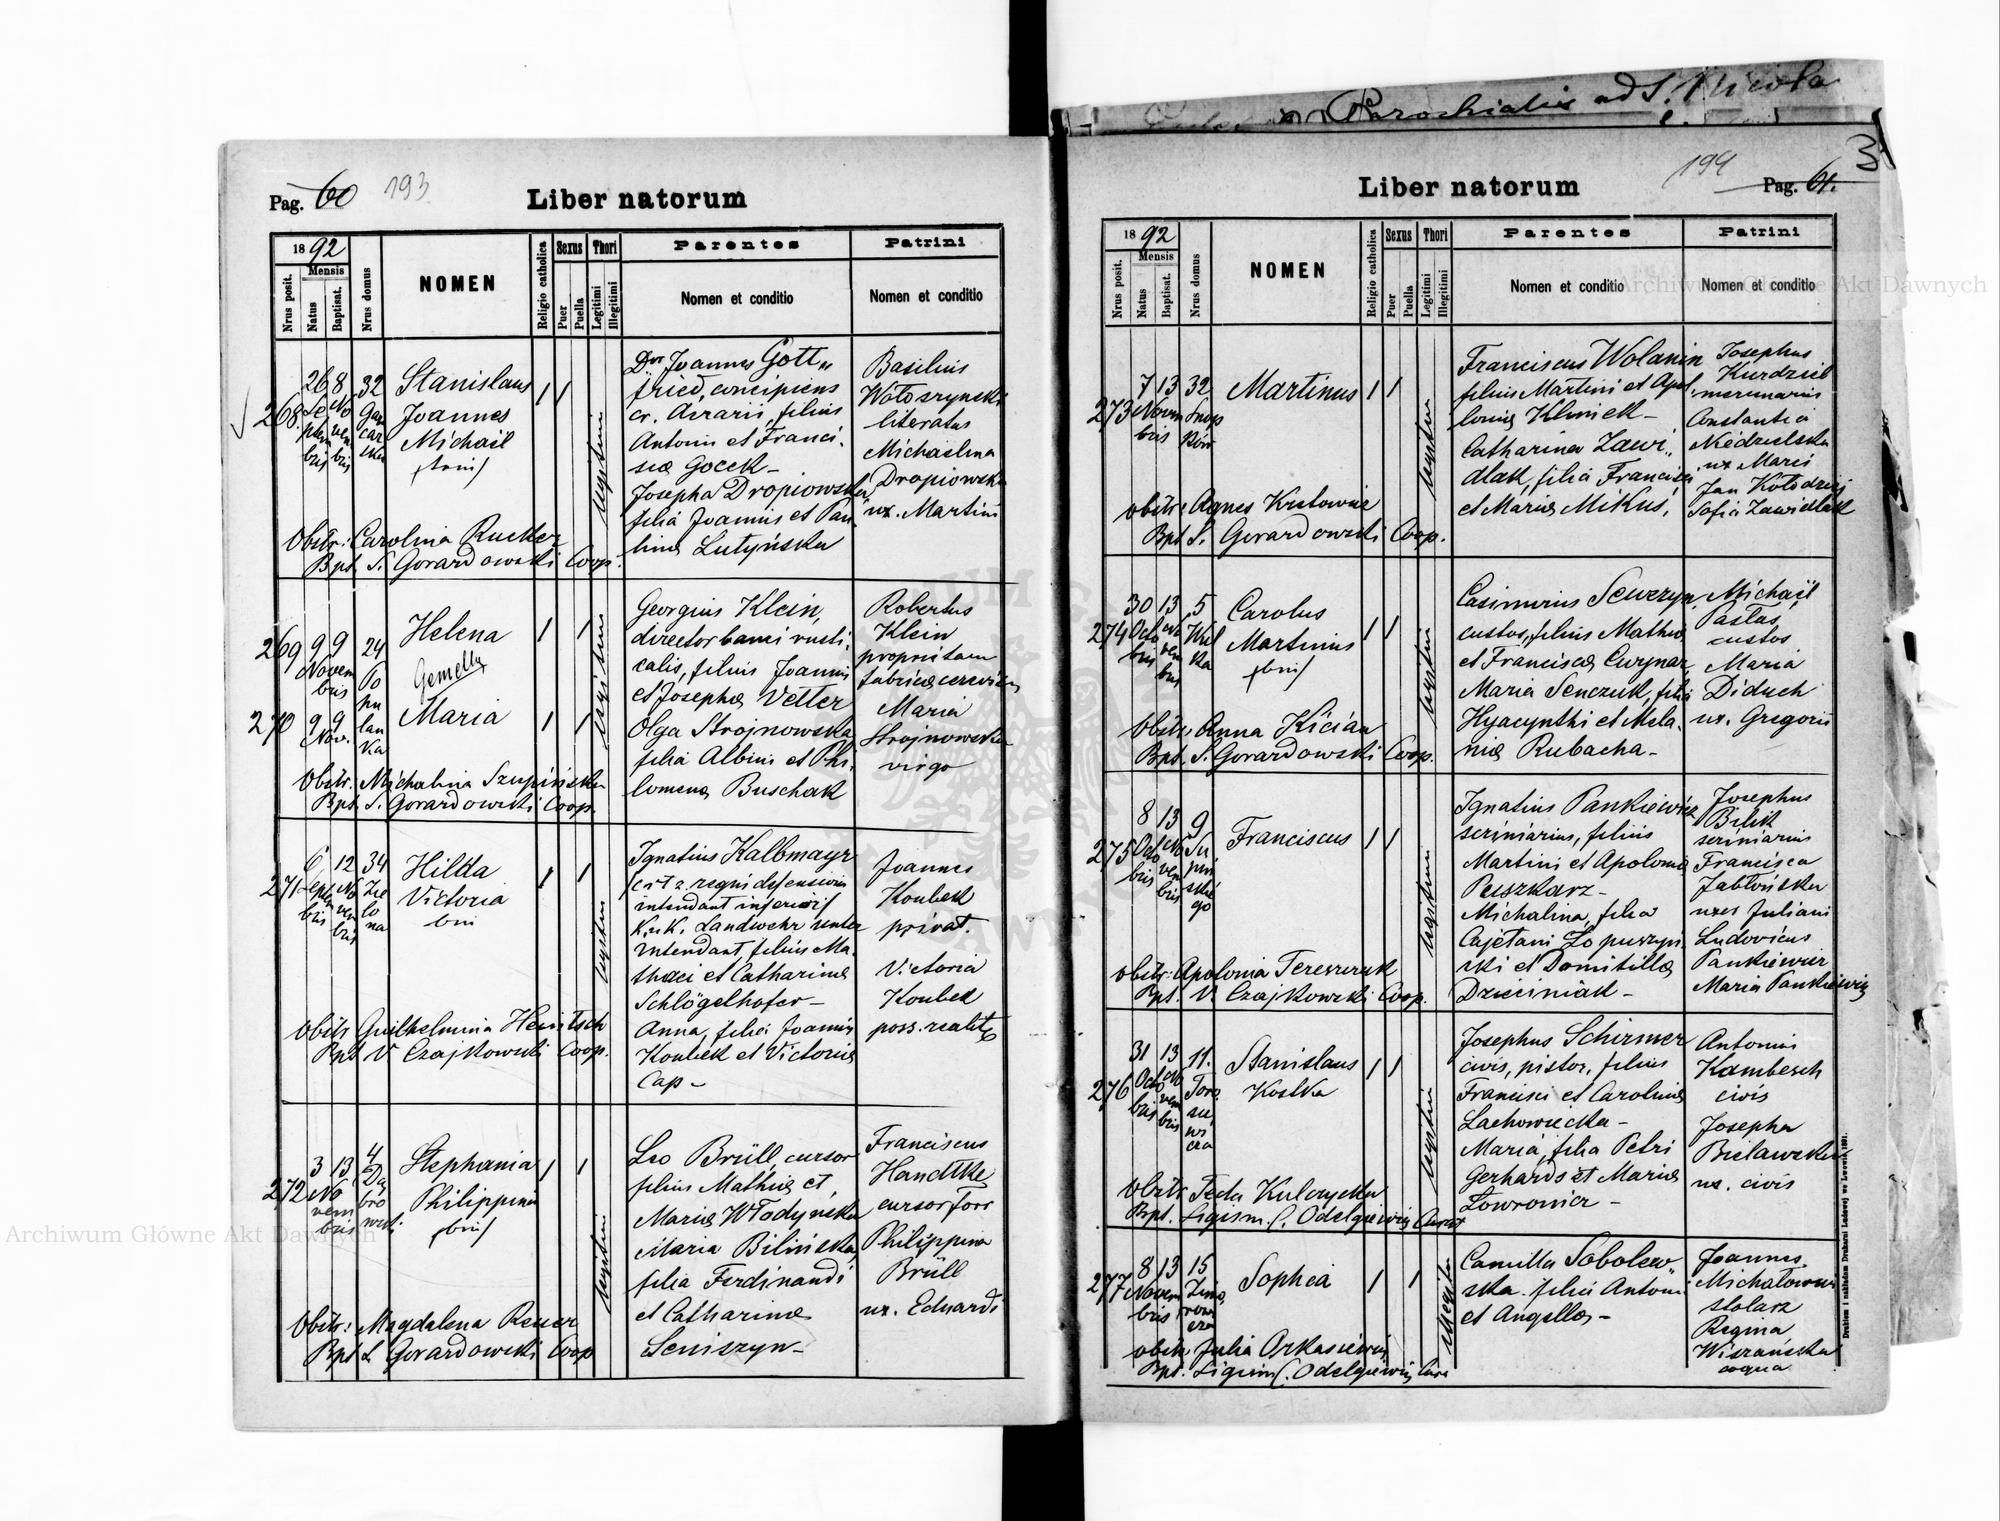 Parochialis ad S. Nicola
Pag. 60 193
Liber natorum
1892
Nrus posit.
Mensis
Natus
Baptisat.
Nrus domus
NOMEN
Religio catholica
Sexus
Puer
Puella
Thori
Legitimi
Illegitimi
Parentes
Nomen et conditio
Patrini
Nomen et conditio
268
26 8 32
Septem
bris
No
vem
bris
Gar
car
ska
Stanislaus
Joannes
Michaël
(bini)
legitimi
Dr Joannes Gott„
fried, concipiens
cr. Aerarii, filius
Antonii et Franci„
scæ Gocek –
Josepha Dropiowska,
filia Joannis et Pau„
linæ Lutyńska
Basilius
Wołoszynski
literatus
Michaëlina
Dropiowska
ux. Martini
Obstr: Carolina Rucker
Bpt. S. Gorardowski Coop.
269
9 9 24
Novem
bris
Po
hu
lan
ka
Helena
Gemellæ
270
9 9
Nov.
Maria
legitimæ
Georgius Klein,
director banci rusti„
calis, filius Joannis
et Josephæ Vetter
Olga Strojnowska
filia Albini et Phi„
lomenæ Buschak
Robertus
Klein
proprietarius
fabricæ cerevisiæ
Maria
Strojnowska
virgo
Obstr. Michalina Szupińska
Bpt. S. Gorardowski Coop.
271
6 12 34
Septem
bris
No
vem
bris
Zie
lo
na
Hilda
Victoria
bin
legitima
Ignatius Kalbmayr
intendant inferior
K. u. K. Landwehr unter
intendant, filius Ma„
thæi et Catharinæ
Schlögelhofer –
Anna, filia Joannis
Koubek et Victoriæ
Cap –
Joannes
Koubek
privat.
Victoria
Koubek
poss. realit
Obstr Guilhelmina Hentsch
Bpt V. Czajkowski Coop.
272
3 13 4
No
vem
bris
Dą
bro
wski
Stephania
Philippina
(bin)
legitima
Leo Brüll, cursor
filius Mathiæ et
Mariæ Włodyńska
Maria Bilińska,
filia Ferdinandi
et Catharinæ
Seniszyn –
Franciscus
Handtke
cursor
Philippina
Brüll
ux. Eduardi
Obstr: Magdalena Reuer
Bpt S. Gorardowski Coop
199 Pag. 61.
Liber natorum
1892
Nrus posit.
Mensis
Natus
Baptisat.
Nrus domus
NOMEN
Religio catholica
Sexus
Puer
Puella
Thori
Legitimi
Illegitimi
Parentes
Nomen et conditio
Patrini
Nomen et conditio
273
7 13 32
Novem
bris
Snop
ków
Martinus
legitimus
Franciscus Wolanin
filius Martini et Apol„
loniæ Klimek –
Catharina Zawi„
dlak, filia Francisci
et Mariæ Mikus,
Josephus
Kurdziel
mercenarius
Constantia
Niedzielska
ux Marci
Jan Kołodziej
Sofia Zawidlak
obstr: Agnes Kutownic
Bpt S. Gorardowski Coop.
274
30 13 5
Octo
bris
No
vem
bris
Wul
ka
Carolus
Martinus
(bini)
legitimus
Casimirius Sewczyn,
custos, filius Mathiæ
et Franciscæ Curynar
Maria Senczuk, filia
Hyacynthi et Mela„
niæ Rubacha –
Michaël
Pastas
custos
Maria
Diduch
ux. Gregorii
Obstr: Anna Kician
Bpt. S. Gorardowski Coop.
275
8 13 9
Octo
bris
No
vem
bris
Su
pin
skie
go
Franciscus
legitimus
Ignatius Pankiewicz
scriniarius, filius
Martini et Apoloniæ
Peszkarz –
Michalina, filia
Cajetani Łopuszyń„
ski et Domitillæ
Dzieciniak –
Josephus
Bilek
scriniarius
Francisca
Jabłońska
uxor Juliani
Ludovicus
Pankiewicz
Maria Pankiewicz
obstr: Apolonia Tereszczuk
Bpt. V. Czajkowski Coop.
276
31 13 11.
Octo
bris
No
vem
bris
Toro
sie
wi
cza
Stanislaus
Kostka
legitimi
Josephus Schirmer
civis, pistor, filius
Francisci et Carolinæ
Lachowiecka –
Maria, filia Petri
Gerhards et Mariæ
Ławronicz –
Antonius
Kambesch
civis
Josepha
Bielawska
ux. civis
Obstr Tecla Kulczycka
Bpt. Sigism C. Odelgiewicz Curat
277
8 13 15
Novem
bris
Zimo
rowi
cza
Sophia
illegitima
Camilla Sobolew„
ska filia Antoni
et Angelæ –
Joannes
Michałowski
stolarz
Regina
Wiszańska
coqua
obstr Julia Arkasiewicz
Bpt. Sigism C. Odelgiewicz Cura
Drukiem i nakładem Drukarni Ludowej we Lwowie 1891.
Archiwum Główne Akt Dawnych
Archiwum Główne Akt Dawnych